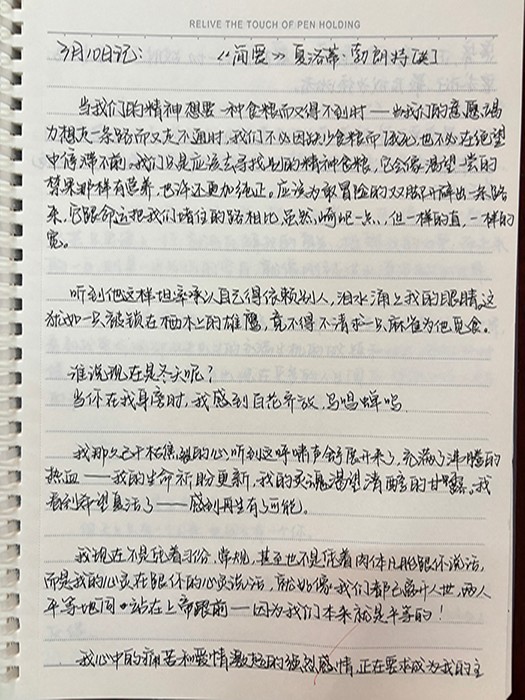 RELIVE THE TOUCH OF PEN HOLDING
3月10日记: 《简爱》夏洛蒂·勃朗特[英]
当我们的精神想要一种食粮而又得不到时——当我们的意愿竭
力想走一条路而又走不通时,我们不必因缺少食粮而饿死,也不必在绝望
中停滞不前。我们只是应该去寻找别的精神食粮,它会像渴望一尝的
禁果那样有营养,也许还更加纯正。应该为那冒险的双脚开辟出一条路
来,它跟命运把我们堵住的路相比,虽然崎岖一点,但一样的直,一样的
宽。
听到他这样坦率承认自己得依赖别人,泪水涌上我的眼睛。这
犹如一只被锁在栖木上的雄鹰,竟不得不请求一只麻雀为他觅食。
谁说现在是冬天呢?
当你在我身旁时,我感到百花齐放,鸟鸣蝉鸣
我那久已干枯待毙的心,听到这呼啸声舒展开来了,充满了沸腾的
热血——我的生命祈盼更新,我的灵魂渴望清醇的甘露。我
看到希望复活了——感到再生有了可能。
我现在不是凭着习俗、常规,甚至也不是凭着肉体凡胎跟你说话,
而是我的心灵在跟你的心灵说话,就好像我们都已离开人世,两人
平等地同站在上帝跟前——因为我们本来就是平等的!
我心中的痛苦和爱情激起的强烈感情,正在要求成为我的主